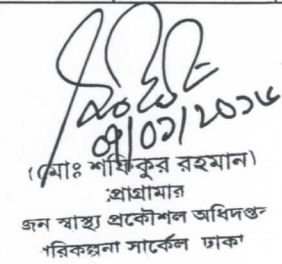 ০৭/০১/২০১৮
(মোঃ শফিকুর রহমান)
প্রোগ্রামার
জন স্বাস্থ্য প্রকৌশল অধিদপ্তর
পরিকল্পনা সার্কেল ঢাকা